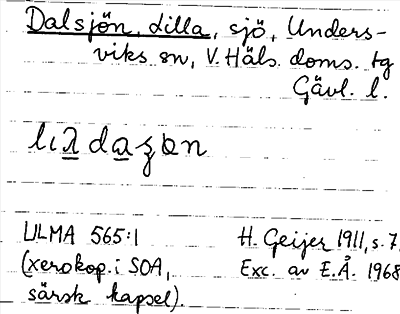 Dalsjön, Lilla, sjö, Unders-
viks sn, V. Häls. doms. tg
Gävl. l.
ULMA 565:1
(xerokop. i SOA,
särsk kapsel).
H. Geijer 1911, s. 7.
Exc. av E.Å. 1968